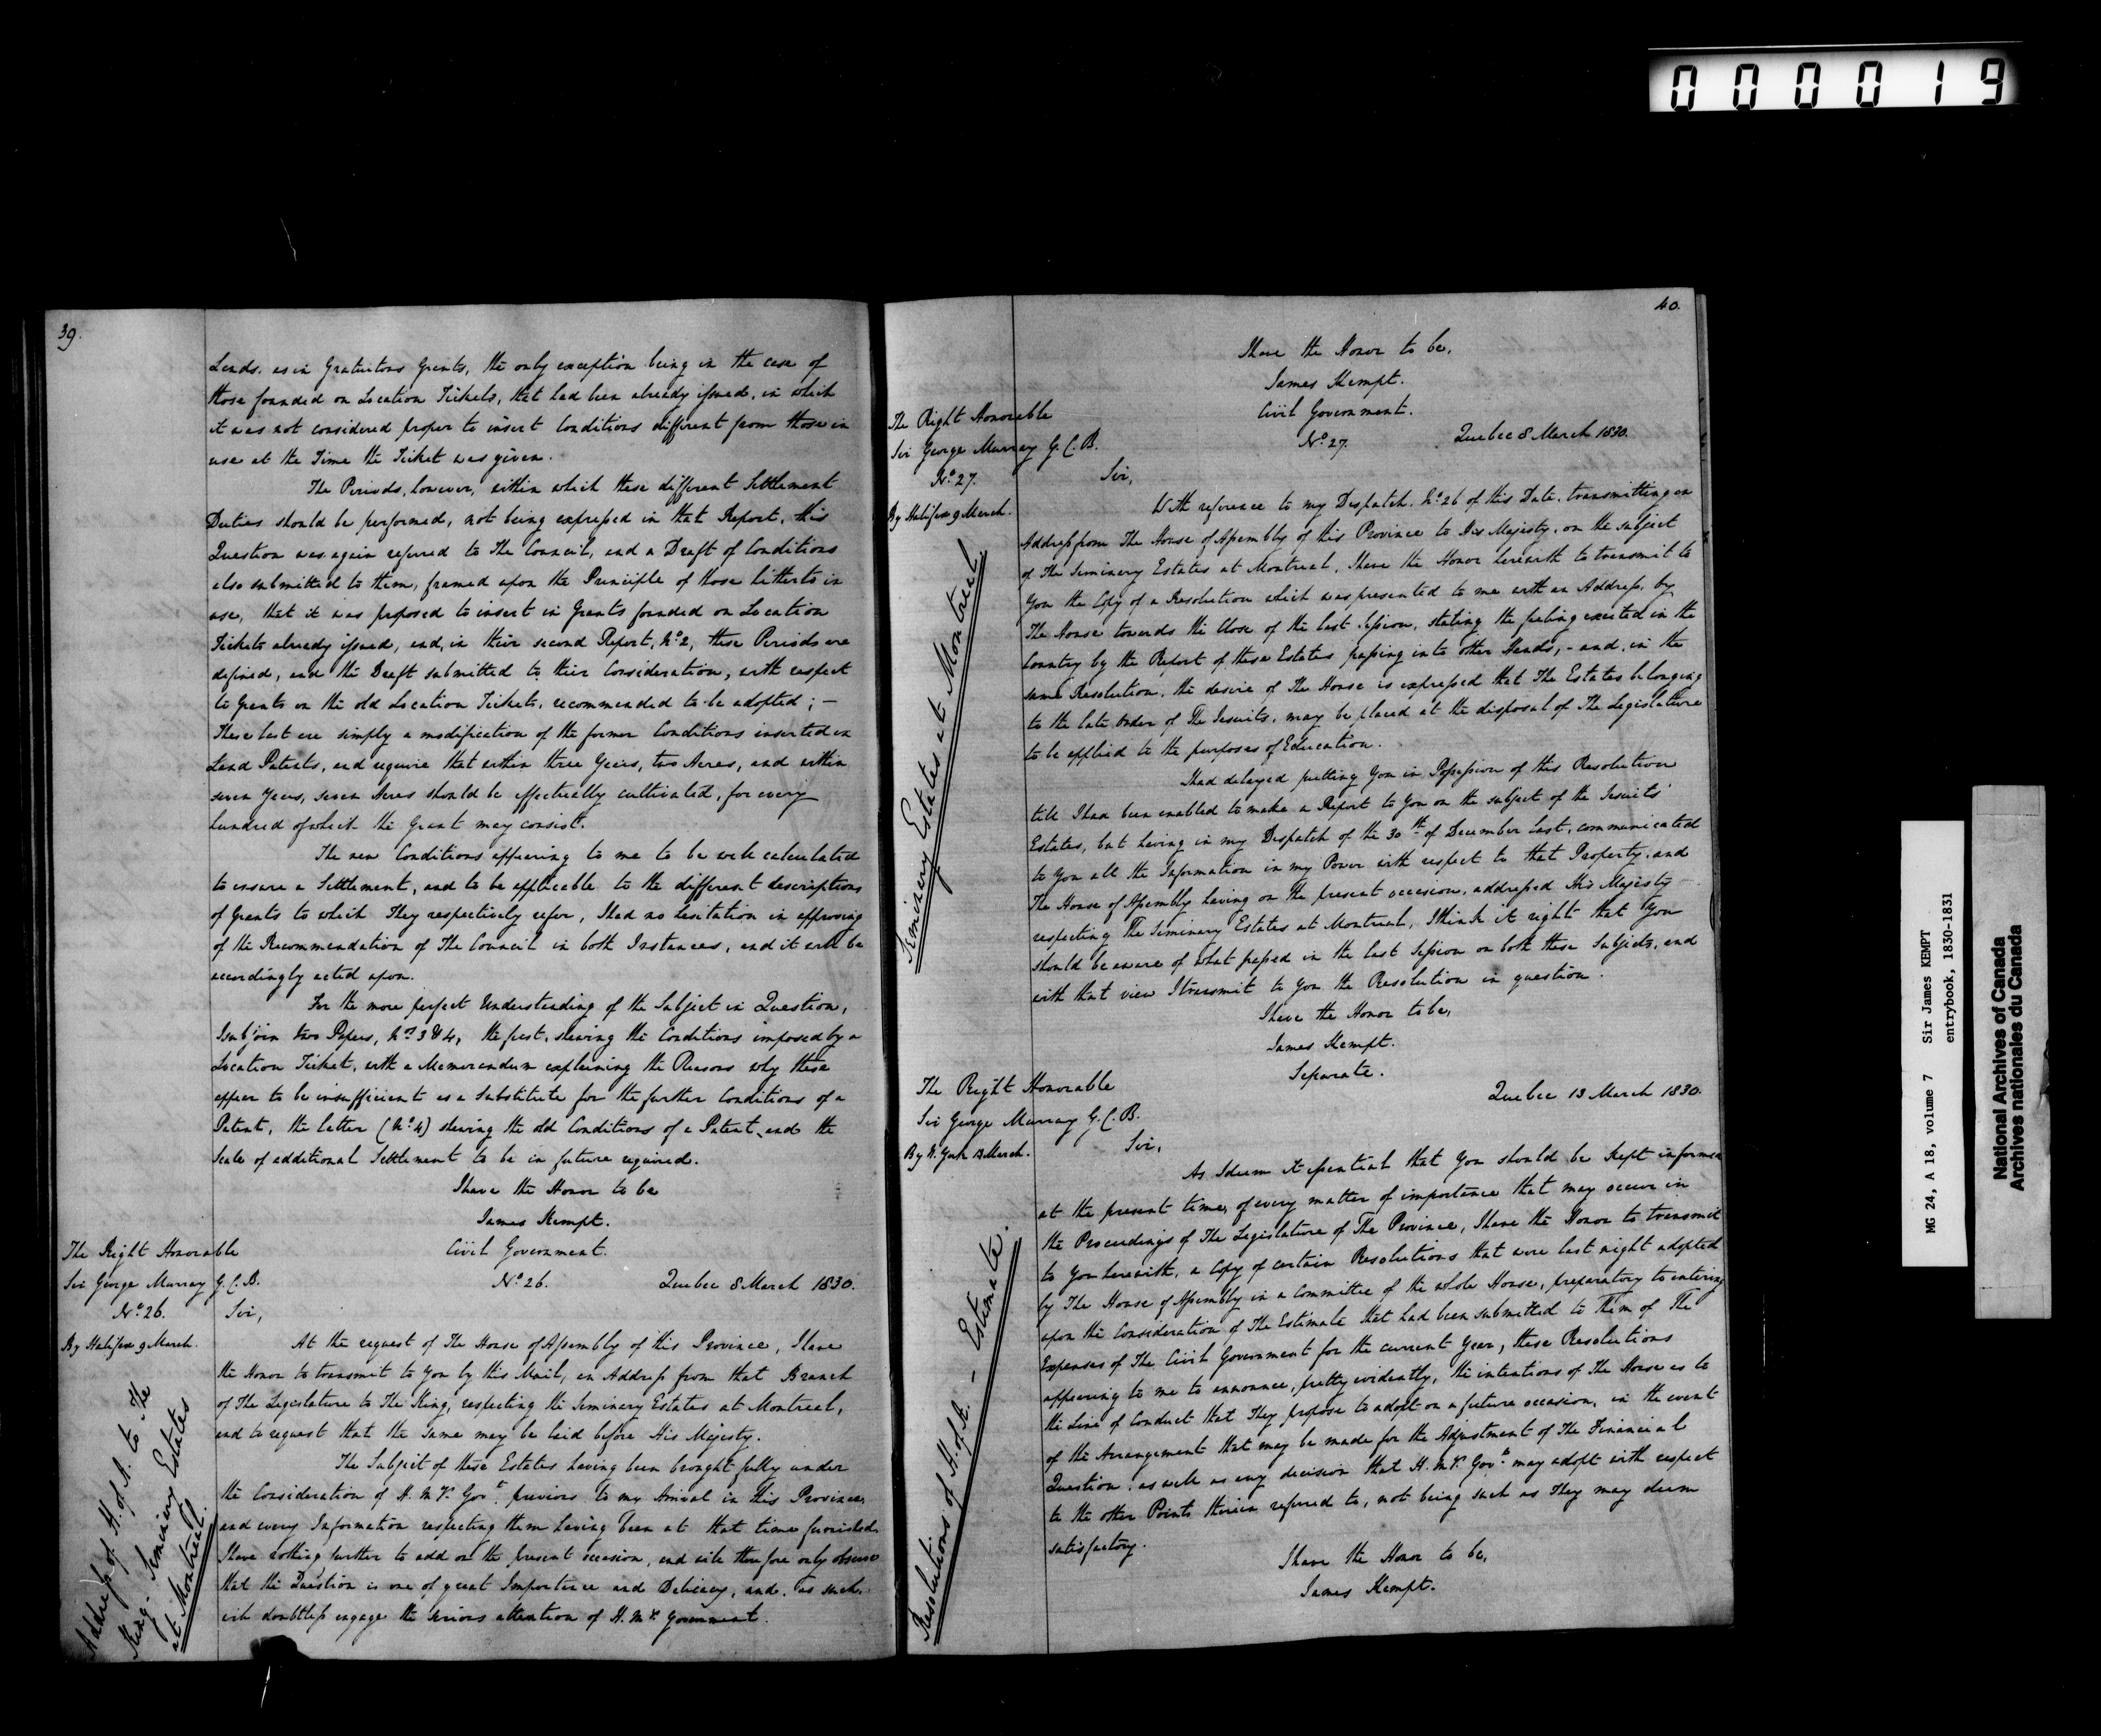 000019
39.
Lands, as in Gratuitous Grants, the only exception being in the case of
those founded on Location Tickets, that had been already issued, in which
it was not considered proper to insert Conditions different from those in
use at the Time the Ticket was given.
The Periods, however, within which these different Settlement
Duties should be performed, not being expressed in that Report, this
Question was again referred to The Council, and a Draft of Conditions
also submitted to them, framed upon the Principle of those hitherto in
use, that it was proposed to insert in Grants founded on Location
Tickets already issued, and, in their second Report, No. 2, these Periods are
defined, and the Draft submitted to their Consideration, with respect
to Grants on the old Location Tickets, recommended to be adopted; –
These last are simply a modification of the former Conditions inserted in
Land Patents, and require that within three Years, two Acres, and within
seven Years, seven Acres should be effectually cultivated, for every
hundred of which the Grant may consist.
The new Conditions appearing to me to be well calculated
to ensure a Settlement, and to be applicable to the different descriptions
of Grants to which They respectively refer, I had no hesitation in approving
of the Recommendation of The Council in both Instances, and it will be
accordingly acted upon.
For the more perfect Understanding of the Subject in Question,
I subjoin two Papers, Nos. 3 & 4, the first, shewing the Conditions imposed by a
Location Ticket, with a Memorandum explaining the Reasons why these
appear to be insufficient as a Substitute for the further Conditions of a
Patent, the latter (No. 4) shewing the old Conditions of a Patent, and the
Scale of additional Settlement to be in future required.
I have the Honor to be
James Kempt.
The Right Honorable
Sir George Murray G.C.B.
No. 26.
By Halifax 9 March.
Civil Government.
No. 26. Quebec 8 March 1830.
Sir,
At the request of The House of Assembly of this Province, I have
the Honor to transmit to You by this Mail, an Address from that Branch
of The Legislature to The King, respecting the Seminary Estates at Montreal,
and to request that the Same may be laid before His Majesty.
The Subject of these Estates having been brought fully under
the Consideration of H. M's. Govt. previous to my Arrival in this Province,
and every Information respecting them having been at that time furnished,
I have nothing further to add on the present occasion, and will therefore only observe
that the Question is one of great Importance and Delicacy, and, as such,
will doubtless engage the serious attention of H. M's. Government.
Address of H. of A. to The
King. Seminary Estates
at Montreal.
40.
I have the Honor to be,
James Kempt.
The Right Honorable
Sir George Murray G.C.B.
No. 27.
By Halifax 9 March.
Civil Government.
No. 27. Quebec 8 March 1830.
Sir,
With reference to my Despatch, No. 26 of this Date, transmitting an
Address from The House of Assembly of this Province to His Majesty, on the subject
of The Seminary Estates at Montreal, I have the Honor herewith to transmit to
You the Copy of a Resolution which was presented to me with an Address, by
The House towards the Close of the last Session, stating the feeling excited in the
Country by the Report of these Estates passing into other Hands, – and, in the
same Resolution, the desire of The House is expressed that The Estates belonging
to the late Order of The Jesuits, may be placed at the disposal of The Legislature
to be applied to the purposes of Education.
I had delayed putting You in Possession of this Resolution
till I had been enabled to make a Report to You on the subject of the Jesuits'
Estates, but having in my Despatch of the 30th of December last, communicated
to You all the Information in my Power with respect to that Property, and
The House of Assembly having on the present occasion, addressed His Majesty
respecting The Seminary Estates at Montreal, I think it right that You
should be aware of what passed in the last Session on both these Subjects, and
with that view I transmit to You the Resolution in question.
I have the Honor to be,
James Kempt.
Seminary Estates at Montreal
The Right Honorable
Sir George Murray G.C.B.
By N. York 13 March.
Separate.
Quebec 13 March 1830.
Sir,
As I deem it essential that You should be kept informed
at the present time, of every matter of importance that may occur in
the Proceedings of The Legislature of The Province, I have the Honor to transmit
to You herewith, a Copy of certain Resolutions that were last night adopted
by The House of Assembly in a Committee of the whole House, preparatory to entering
upon the Consideration of The Estimate that had been submitted to Them of The
Expenses of The Civil Government for the current Year, these Resolutions
appearing to me to announce, pretty evidently, the intentions of The House as to
the Line of Conduct that They propose to adopt on a future occasion, in the event
of the Arrangement that may be made for the Adjustment of The Financial
Question, as well as any decision that H. M's. Govt. may adopt with respect
to the other Points therein referred to, not being such as They may deem
satisfactory.
I have the Honor to be,
James Kempt.
Resolutions of H. of A. – Estimate.
MG 24, A 18, volume 7 Sir James KEMPT
entrybook, 1830-1831
National Archives of Canada
Archives nationales du Canada